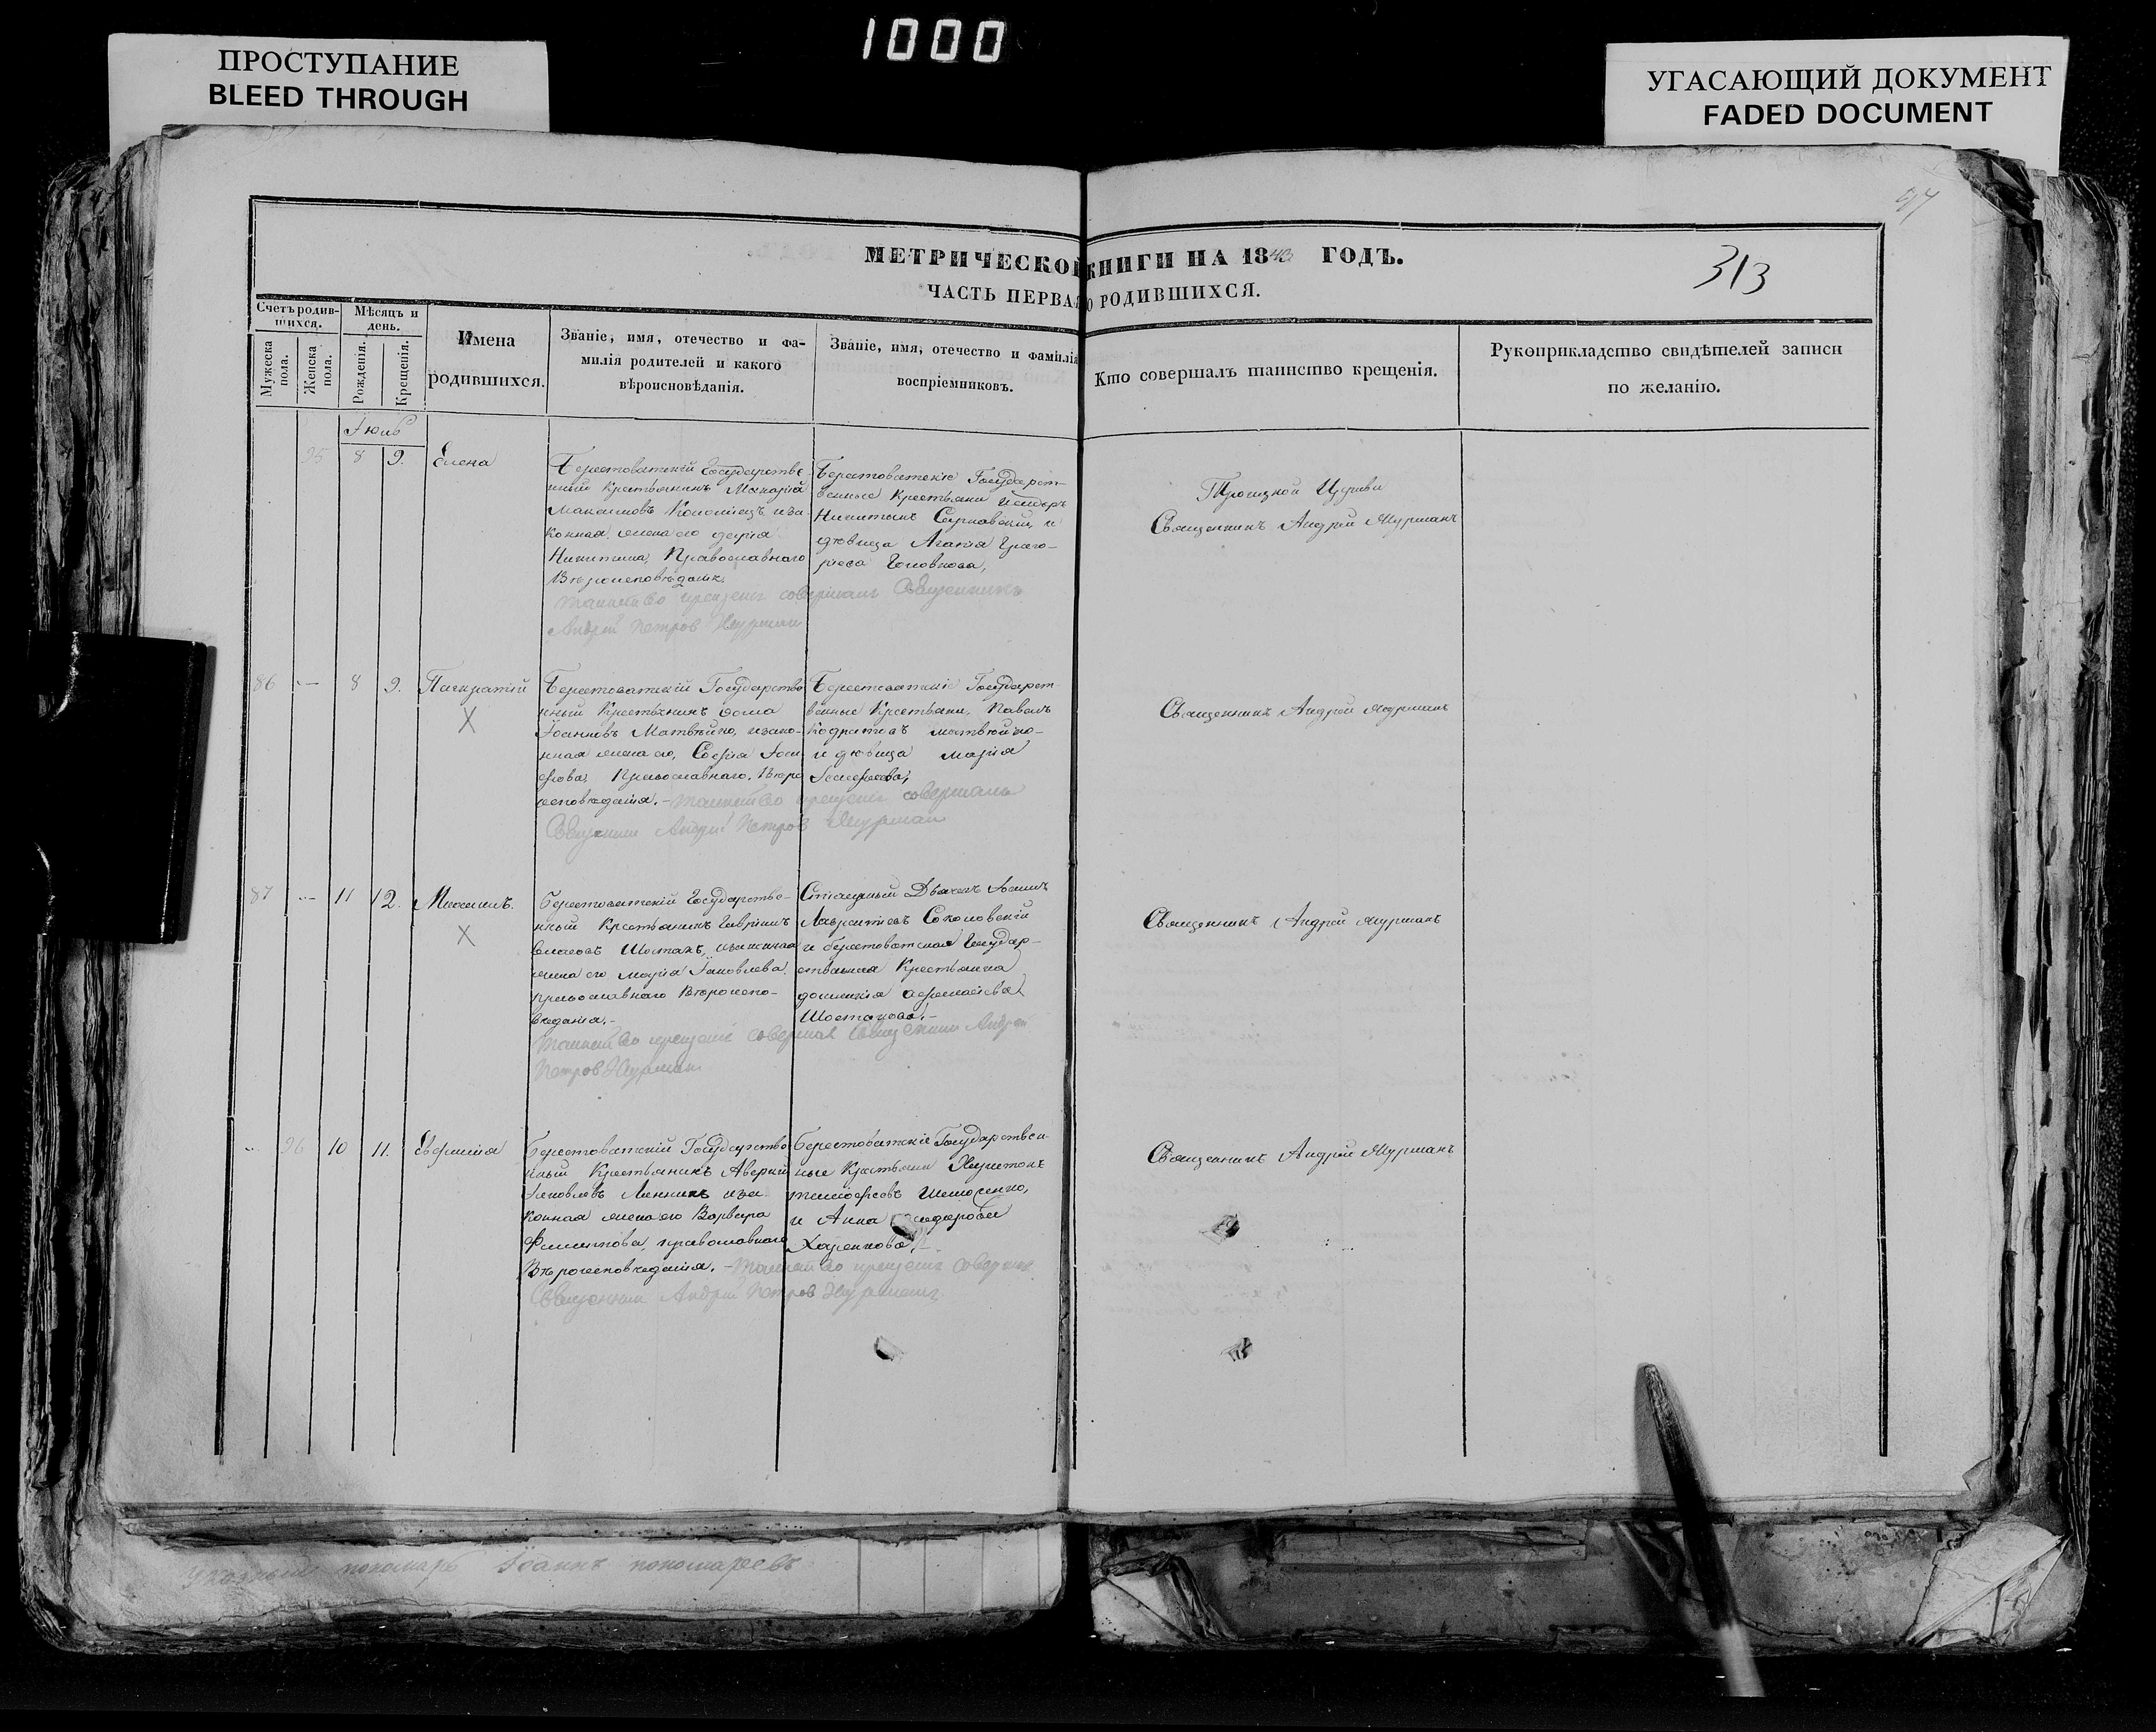 1000
ПРОСТУПАНИЕ
BLEED THROUGH
УГАСАЮЩИЙ ДОКУМЕНТ
FADED DOCUMENT
313
МЕТРИЧЕСКОЙ КНИГИ НА 1843 ГОДЪ.
ЧАСТЬ ПЕРВАЯ О РОДИВШИХСЯ.
Счетъ родив-
шихся.
Мужеска
пола.
Женска
пола.
Мѣсяцъ и
день.
Рожденія.
Крещенія.
Имена
родившихся.
Званіе, имя, отечество и фа-
милія родителей и какого
вѣроисновѣданія.
Званіе, имя, отечество и фамилія
воспріемниковъ.
Кто совершалъ таинство крещенія.
Рукоприкладство свидѣтелей записи
по желанію.
Іюль
95 8 9. Елена
Берестоватскій Государстве-
нный Крестьянинъ Макарій
Максимовъ Коломіецъ и за-
конная жена его Дарія
Никитина, Православнаго
Вѣроисповѣданія.
Таинство крещенія совершалъ Священникъ
Андрей Петров Журман
Берестоватскіе Государст-
венные Крестьяни
Никитинъ и
дѣвица Агафія Григо-
ріева Головкова,
Троицкой Церкви
Священникъ Андрей Журманъ
86 — 8 9. Панкратій
Берестоватскій Государстве
нный Крестьянинъ Фома
Іоанновъ Матвѣйко, и зако-
нная жена его, Софія Іоси
фова, Православнаго Вѣро
исповѣданія. - Таинство крещенія совершалъ
Священник Андрей Петров Журман
Берестоватскіе Государст-
венные Крестьяни, Павелъ
Кодратовъ Матвѣйко-
и дѣвица Марія
Іосифова;
Священникъ Андрей Журманъ
87 — 11 12. Михаилъ.
Берестоватскій Государстве-
нный Крестьянинъ Гавріилъ
Власовъ Шостакъ, и законная
жена его Марія Іаковлева.
Православнаго Вѣроиспо-
вѣданія.-
Таинство крещенія совершал Священник Андрей
Петров Журман
Лаврентіевъ Соколовскій
и Берестоватская Государ-
ственная Крестьянка
Шостакова.-
Священникъ Андрей Журманъ
96 10 11. Евфимія
Берестоватскій Государстве
нный Крестьянинъ Аверкій
Іаковлевъ Линникъ и за-
конная жена его Варвара
Филиппова, православнаго
Вѣроисповѣданія. - Таинство крещенія совершал
Священник Андрей Петров Журман
Берестоватскіе Государствен-
ные Крестьяни Харитонъ
Тимофеевъ
и Анна
Харенкова,
Священникъ Андрей Журманъ
пономарь Іоаннъ Пономаревъ